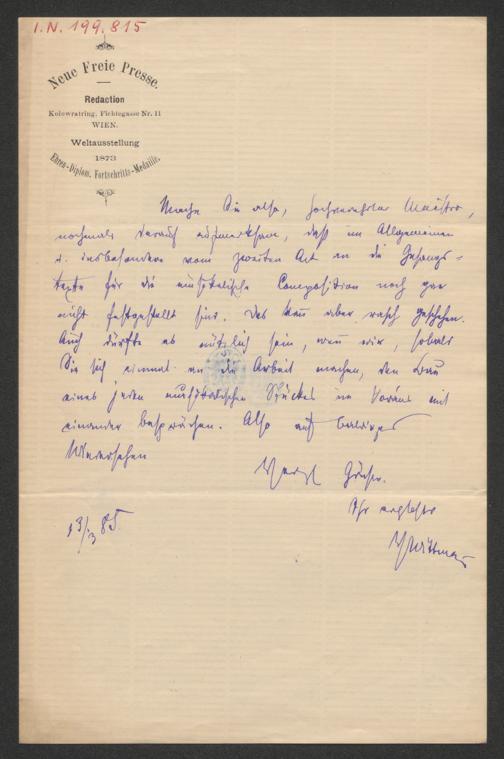 I.N. 199.815
Neue Freie Presse.
Redaction
Kolowratring, Fichtegasse Nr. 11
WIEN.
Weltausstellung
1873
Ehren-Diplom. Fortschritts-Medaille.
Mache Sie also, hochverehrter Maëstro,
nochmals darauf aufmerksam, daß im Allgemeinen
u. insbesondere vom zweiten Act an die Gesangs-
texte für die musikalische Composition noch gar
nicht festgestellt sind. Das kann aber rasch geschehen.
Auch dürfte es nützlich sein, wenn wir, sobald
Sie sich einmal an die Arbeit machen, den Bau
eines jeden musikalischen Stückes im Voraus mit
einander besprächen. Also auf baldiges
Wiedersehen
Herzl Grüße.
Ihr ergebster
HWittmann
13/3 85